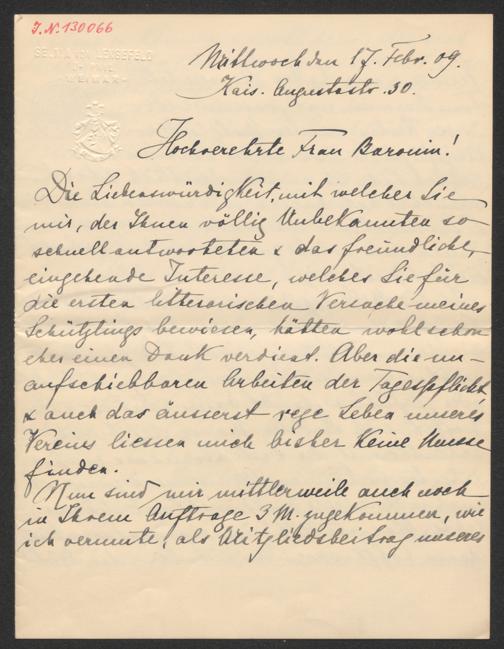 J.N. 130066
SELMA VON LENGEFELD
WEIMAR
Mittwoch den 17. Febr. 09.
Kais. Augustastr. 30.
Hochverehrte Frau Baronin!
Die Liebenswürdigkeit, mit welcher Sie
mir, der Ihnen völlig Unbekannten so
schnell antworteten & das freundliche,
eingehende Interesse, welches Sie für
die ersten litterarischen Versuche meines
Schützlings bewiesen, hätten wohl schon
eher einen Dank verdient. Aber die un-
aufschiebbaren Arbeiten der Tagespflicht
& auch das äusserst rege Leben unseres
Vereins liessen mich bisher keine Musse
finden.
Nun sind mir mittlerweile auch noch
in Ihrem Auftrage 3 M. zugekommen, wie
ich vermute, als Mitgliedsbeitrag unseres